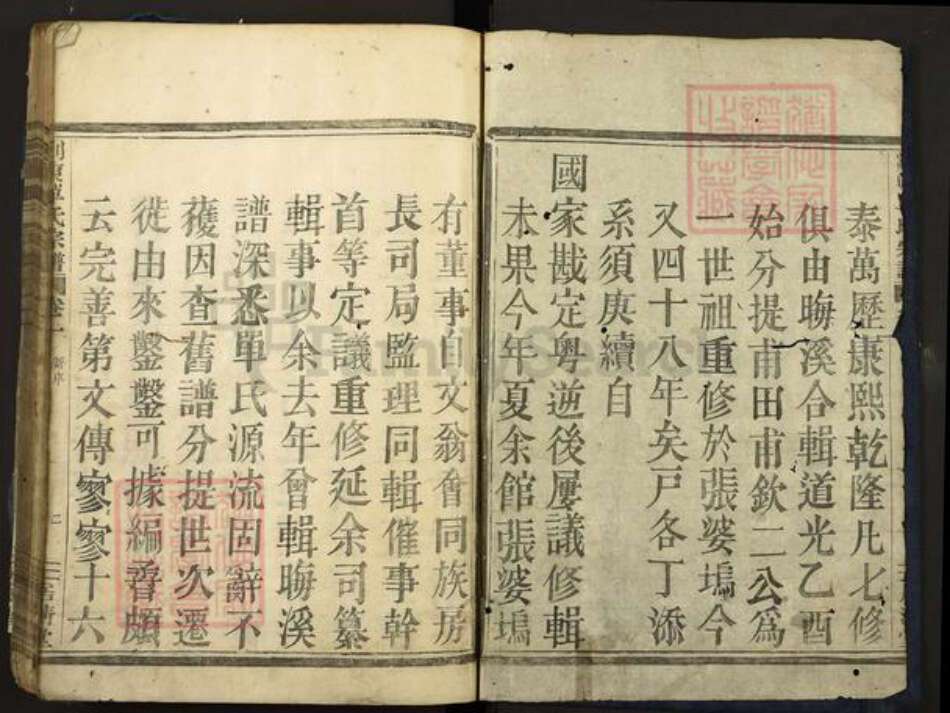 泰萬歷康熙乾隆凡七修
俱由晦溪合輯道光乙酉
始分提甫田甫欽二公爲
一世祖重修於張婆塢今
又四十八年矣戸各丁添
系須庚續自
國家戡定粤逆後屢議修輯
未果今年夏余館張婆塢
有董事自文翁會同族房
長司局監理同輯催事幹
首等定議重修延余司纂
輯事以余去年曾輯晦溪
譜深悉單氏源流固辭不
獲因查舊譜分提世次遷
徙由來鑿鑿可據編書頗
云完善第文傳寥寥十六
氏宗譜
卷一
新序